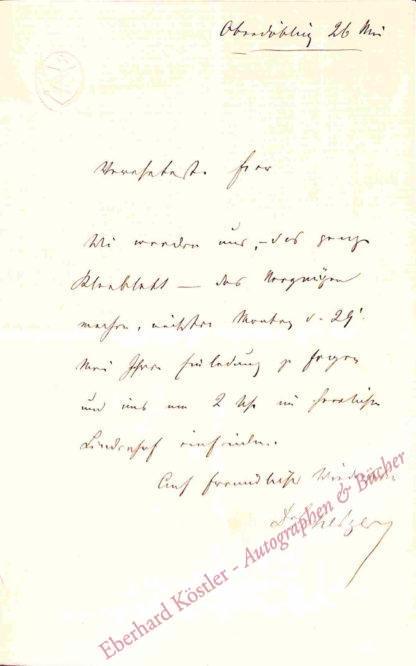 Oberdöbling 26 Mai
Verehrtester Herr
Wir werden uns, – das ganze
Kleeblatt – das Vergnügen
machen, nächsten Montag d. 29t
Mai Ihrer Einladung zu folgen
und uns um 2 Uhr im herrlichen
Lindenhof einfinden.
Auf freundliches Wiedersehen
Eberhard Köstler - Autographen & Bücher